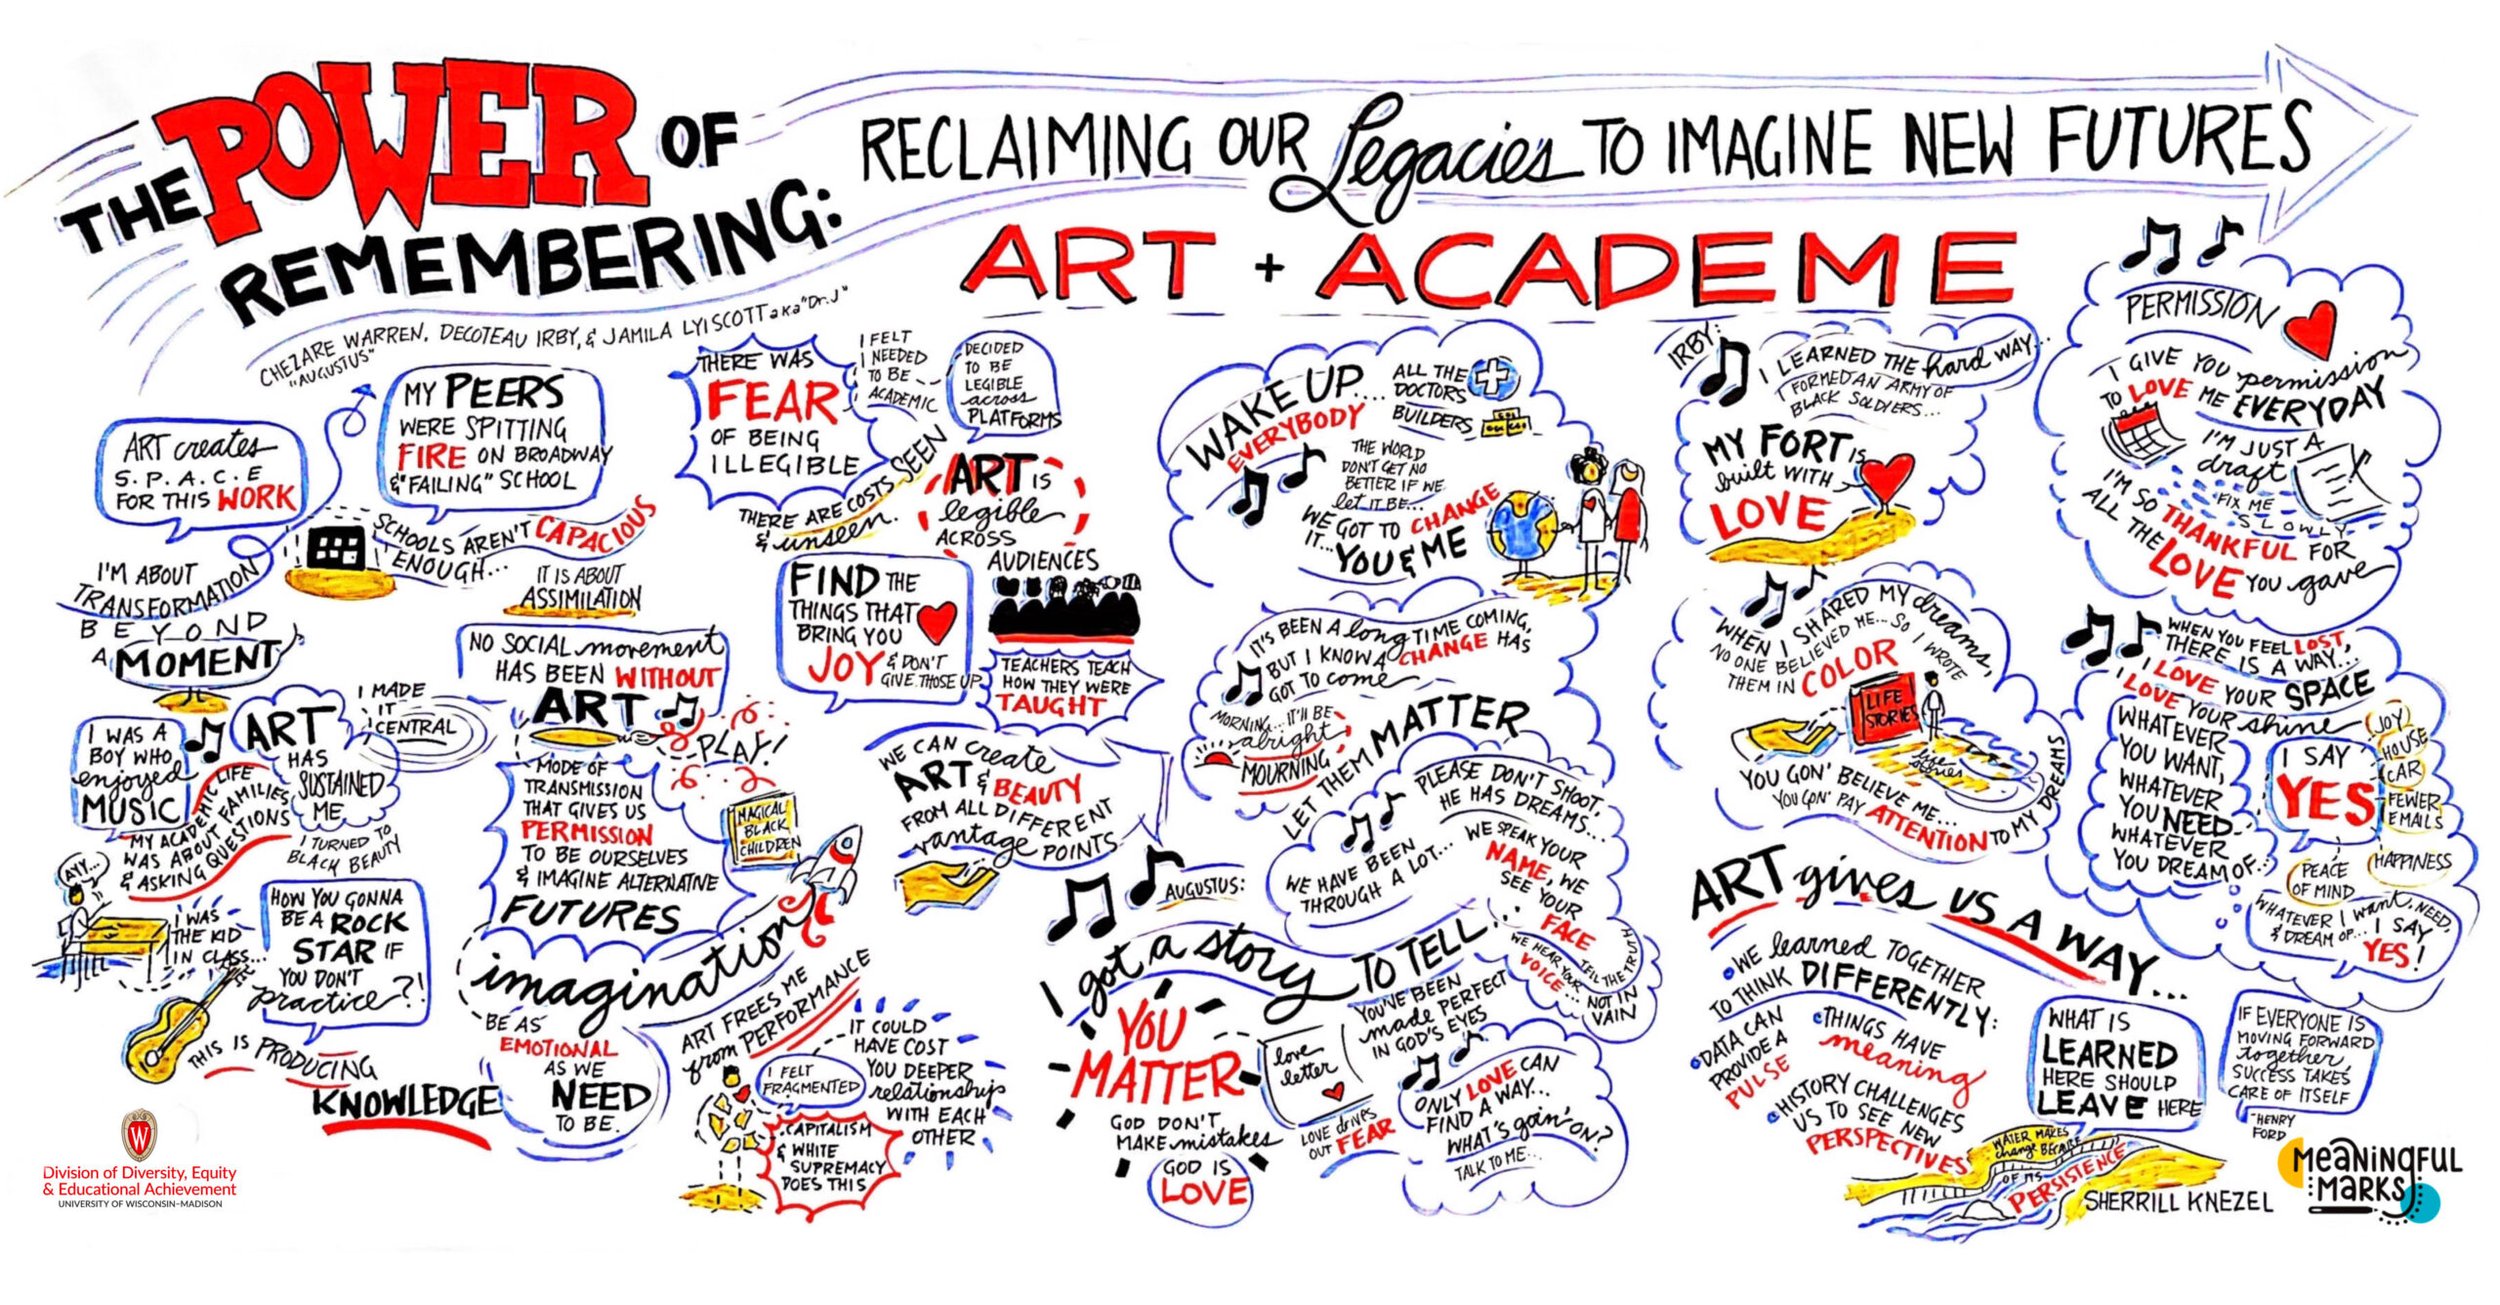 THE POWER OF
REMEMBERING:
RECLAIMING OUR Legacies TO IMAGINE NEW FUTURES
ART + ACADEME
CHEZARE WARREN, DECOTEAU IRBY, & JAMILA LYISCOTT aka "Dr. J"
"AUGUSTUS"
ART creates
S.P.A.C.E
FOR THIS WORK
I'M ABOUT
TRANSFORMATION
BEYOND
A MOMENT
MY PEERS
WERE SPITTING
FIRE ON BROADWAY
& "FAILING" SCHOOL
SCHOOLS AREN'T CAPACIOUS
ENOUGH...
IT IS ABOUT
ASSIMILATION
I WAS A
BOY WHO
enjoyed
MUSIC
ART
HAS
SUSTAINED
ME
I MADE
IT
CENTRAL
MY ACADEMIC LIFE
WAS ABOUT FAMILIES
& ASKING QUESTIONS
I TURNED TO
BLACK BEAUTY
AYY...
I WAS
THE KID
IN CLASS...
HOW YOU GONNA
BE A ROCK
STAR IF
YOU DON'T
practice?!
THIS IS PRODUCING
KNOWLEDGE
NO SOCIAL movement
HAS BEEN WITHOUT
ART
PLAY!
MODE OF
TRANSMISSION
THAT GIVES US
PERMISSION
TO BE OURSELVES
& IMAGINE ALTERNATIVE
FUTURES
MAGICAL
BLACK
CHILDREN
imagination
BE AS
EMOTIONAL
AS WE
NEED
TO BE.
ART FREES ME
from PERFORMANCE
I FELT
FRAGMENTED
IT COULD
HAVE COST
YOU DEEPER
relationships
WITH EACH
OTHER
CAPITALISM
& WHITE
SUPREMACY
DOES THIS
THERE WAS
FEAR
OF BEING
ILLEGIBLE
I FELT
I NEEDED
TO BE
ACADEMIC
DECIDED
TO BE
LEGIBLE
across
PLATFORMS
THERE ARE COSTS SEEN
& unseen.
ART IS
legible
ACROSS
AUDIENCES
FIND THE
THINGS THAT
BRING YOU
JOY & DON'T
GIVE THOSE UP
TEACHERS TEACH
HOW THEY WERE
TAUGHT
WE CAN create
ART & BEAUTY
FROM ALL DIFFERENT
vantage POINTS
WAKE UP....
EVERYBODY
ALL THE
DOCTORS
BUILDERS
THE WORLD
DON'T GET NO
BETTER IF WE
let IT BE...
WE GOT TO CHANGE
IT...
YOU & ME
IT'S BEEN A long TIME COMING,
BUT I KNOW A CHANGE HAS
GOT TO come
MORNING... IT'll BE
alright
MOURNING
LET THEM MATTER
PLEASE DON'T SHOOT,
HE HAS DREAMS...
WE HAVE BEEN
THROUGH A LOT...
WE SPEAK YOUR
NAME, WE
SEE YOUR
FACE
WE HEAR YOUR
VOICE...
TELL THE TRUTH
NOT IN
VAIN
AUGUSTUS:
I got a story TO TELL.
YOU
MATTER
GOD DON'T
MAKE mistakes
GOD IS
LOVE
love
letter
YOU'VE BEEN
made PERFECT
IN GOD'S EYES
LOVE drives
OUT FEAR
ONLY LOVE CAN
FIND A WAY...
WHAT'S goin' ON?
TALK TO ME...
IRBY:
I LEARNED THE hard WAY...
I FORMED AN ARMY OF
BLACK SOLDIERS...
MY FORT IS
built WITH
LOVE
WHEN I SHARED MY dreams,
NO ONE BELIEVED ME... SO I WROTE
THEM IN COLOR
LIFE
STORIES
life
stories
YOU GON' BELIEVE ME...
YOU GON' PAY ATTENTION TO MY DREAMS
ART gives US A WAY...
WE learned TOGETHER
TO THINK DIFFERENTLY:
DATA CAN
PROVIDE A
PULSE
THINGS HAVE
meaning
HISTORY CHALLENGES
US TO SEE NEW
PERSPECTIVES
WHAT IS
LEARNED
HERE SHOULD
LEAVE HERE
WATER MAKES
change BECAUSE
OF ITS
PERSISTENCE
PERMISSION
I GIVE YOU permission
TO LOVE ME EVERYDAY
I'M JUST A
draft
FIX ME
SLOWLY
I'M SO THANKFUL FOR
ALL THE LOVE YOU gave
WHEN YOU FEEL LOST,
THERE IS A WAY...
I LOVE YOUR SPACE
I LOVE YOUR shine
WHATEVER
YOU WANT,
WHATEVER
YOU NEED
WHATEVER
YOU DREAM OF...
I SAY
YES
JOY
HOUSE
CAR
FEWER
EMAILS
HAPPINESS
PEACE
OF MIND
WHATEVER I want, NEED,
& DREAM OF... I SAY
YES!
IF EVERYONE IS
MOVING FORWARD
together,
SUCCESS TAKES
CARE OF ITSELF
-HENRY
FORD
SHERRILL KNEZEL
MeaNiNgFUL
MaRKS
W
Division of Diversity, Equity
& Educational Achievement
UNIVERSITY OF WISCONSIN-MADISON